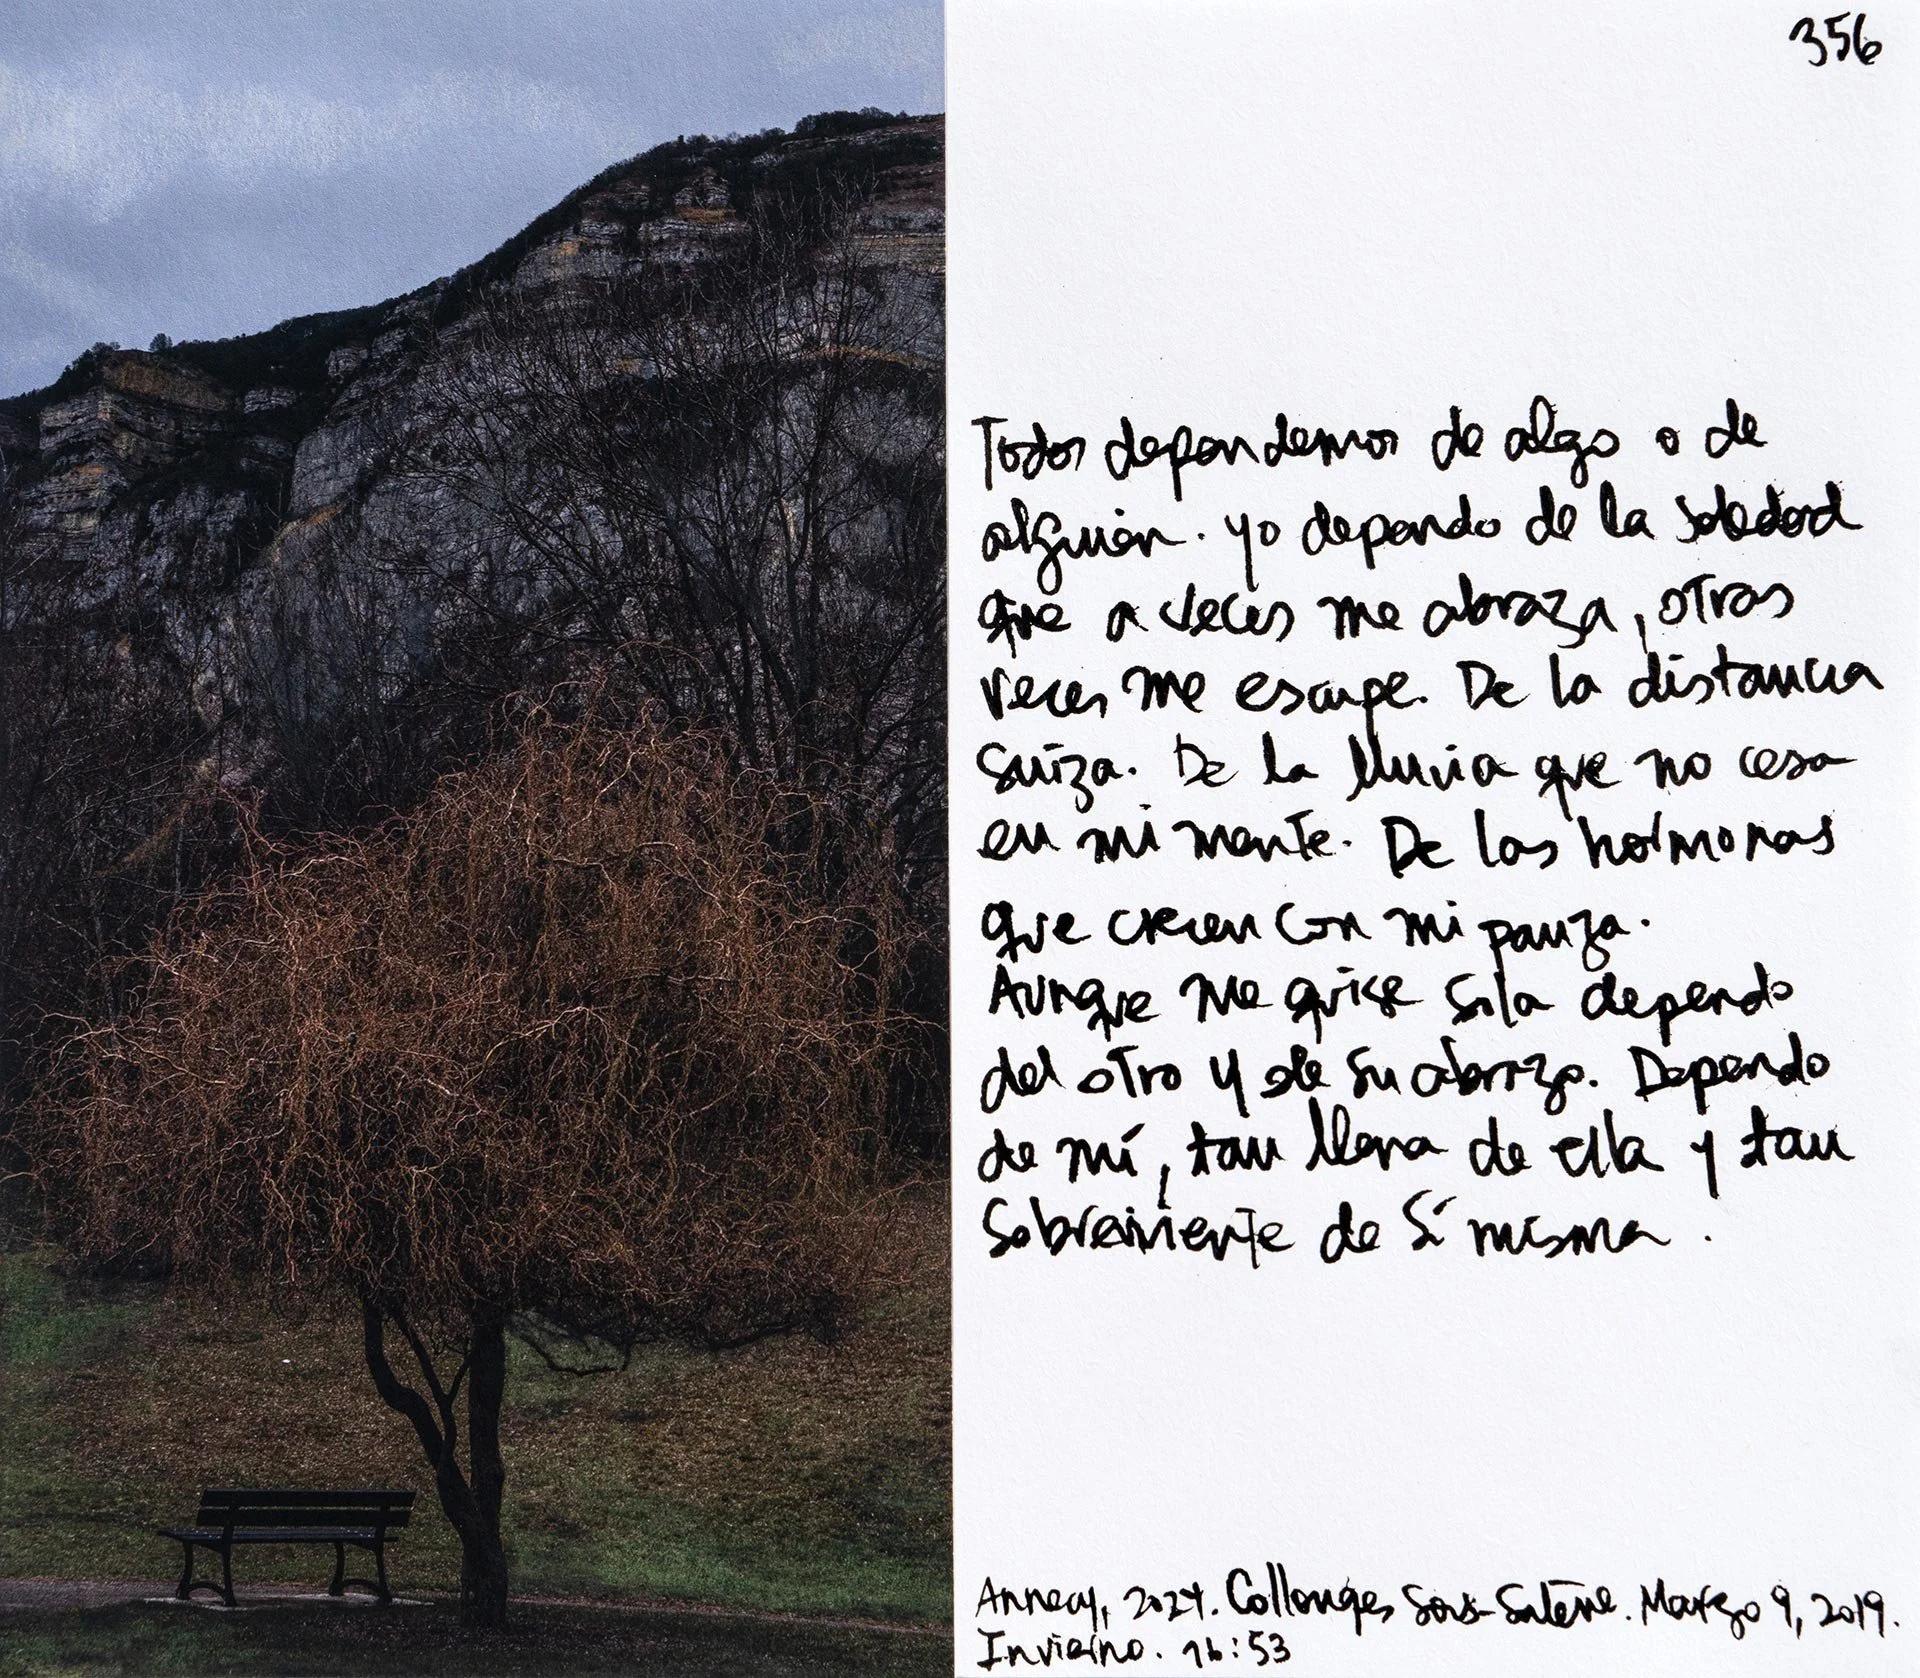 356
Todos dependemos de algo o de
alguien. Yo dependo de la soledad
que a veces me abraza, otras
veces me escupe. De la distancia
suiza. De la lluvia que no cesa
en mi mente. De las hormonas
que crecen con mi panza.
Aunque me quise sola dependo
del otro y de su abrazo. Dependo
de mí, tan llena de ella y tan
sobreviviente de sí misma.
Annecy, 2024. Collonges Sous-Salève. Marzo 9, 2019.
Invierno. 16:53